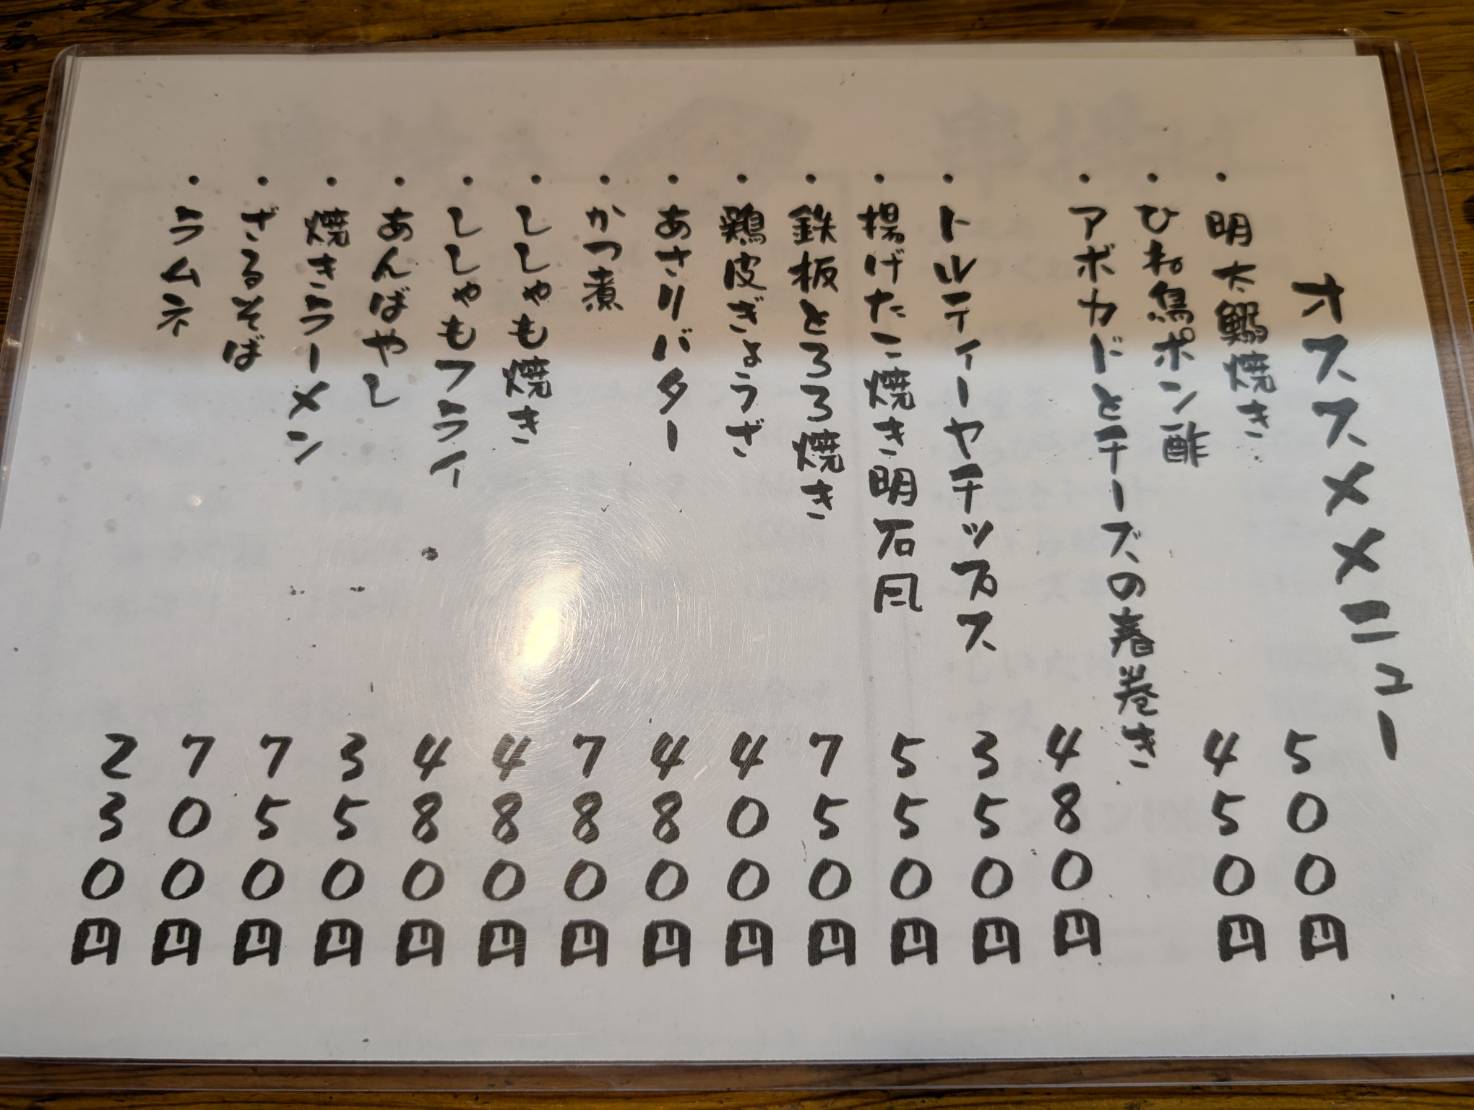 オススメメニュー
・明太鰯焼き 500円
・ひね鳥ポン酢 450円
・アボカドとチーズの春巻き 480円
・トルティーヤチップス 350円
・揚げたこ焼き明石風 550円
・鉄板とろろ焼き 750円
・鶏皮ぎょうざ 400円
・あさりバター 480円
・かつ煮 780円
・ししゃも焼き 480円
・ししゃもフライ 480円
・あんばやし 350円
・焼きラーメン 750円
・ざるそば 700円
・ラムネ 230円